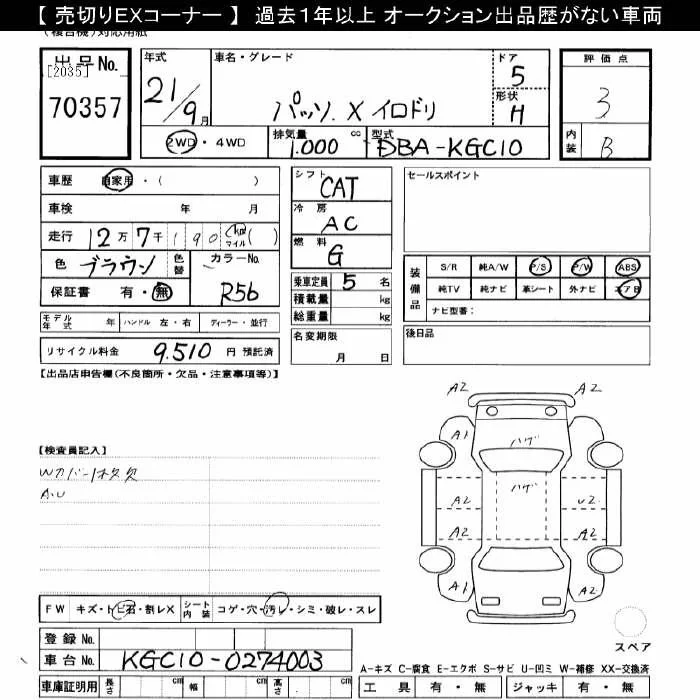 【 売切りEXコーナー 】 過去1年以上 オークション出品歴がない車両
(複合機)対応用紙
出品No. [2035] 70357
年式 21/9月
車名・グレード パッソ. X イロドリ
ドア 5
形状 H
2WD・4WD
排気量 1.000 cc
型式 DBA-KGC10
評価点 3
内装 B
車歴 自家用・( )
車検 年 月
走行 12万7千190 (km マイル)( )
色 ブラウン 色替 カラーNo. R56
保証書 有・無
モデル年式 年 ハンドル 左・右 ディーラー・並行
リサイクル料金 9.510 円 預託済
シフト CAT
冷房 AC
燃料 G
乗車定員 5 名
積載量 kg
総重量 kg
名変期限 月 日
セールスポイント
装備品 S/R 純A/W P/S P/W ABS
純TV 純ナビ 革シート 外ナビ エアB
ナビ型番:
後日品
【出品店申告欄(不良箇所・欠品・注意事項等)】
【検査員記入】
A.U
A2 A2
A1 ハゲ
ハゲ
A2 U2
A2 A2
A1 A2
A2 A2
FW キズ・トビ石・割レX シート内装 コゲ・穴・汚レ・シミ・破レ・スレ
登録No.
車台No. KGC10-0274003
スペア
A-キズ C-腐食 E-エクボ S-サビ U-凹ミ W-補修 XX-交換済
車庫証明用 長さ cm 幅 cm 高さ cm
工具 有・無 ジャッキ 有・無